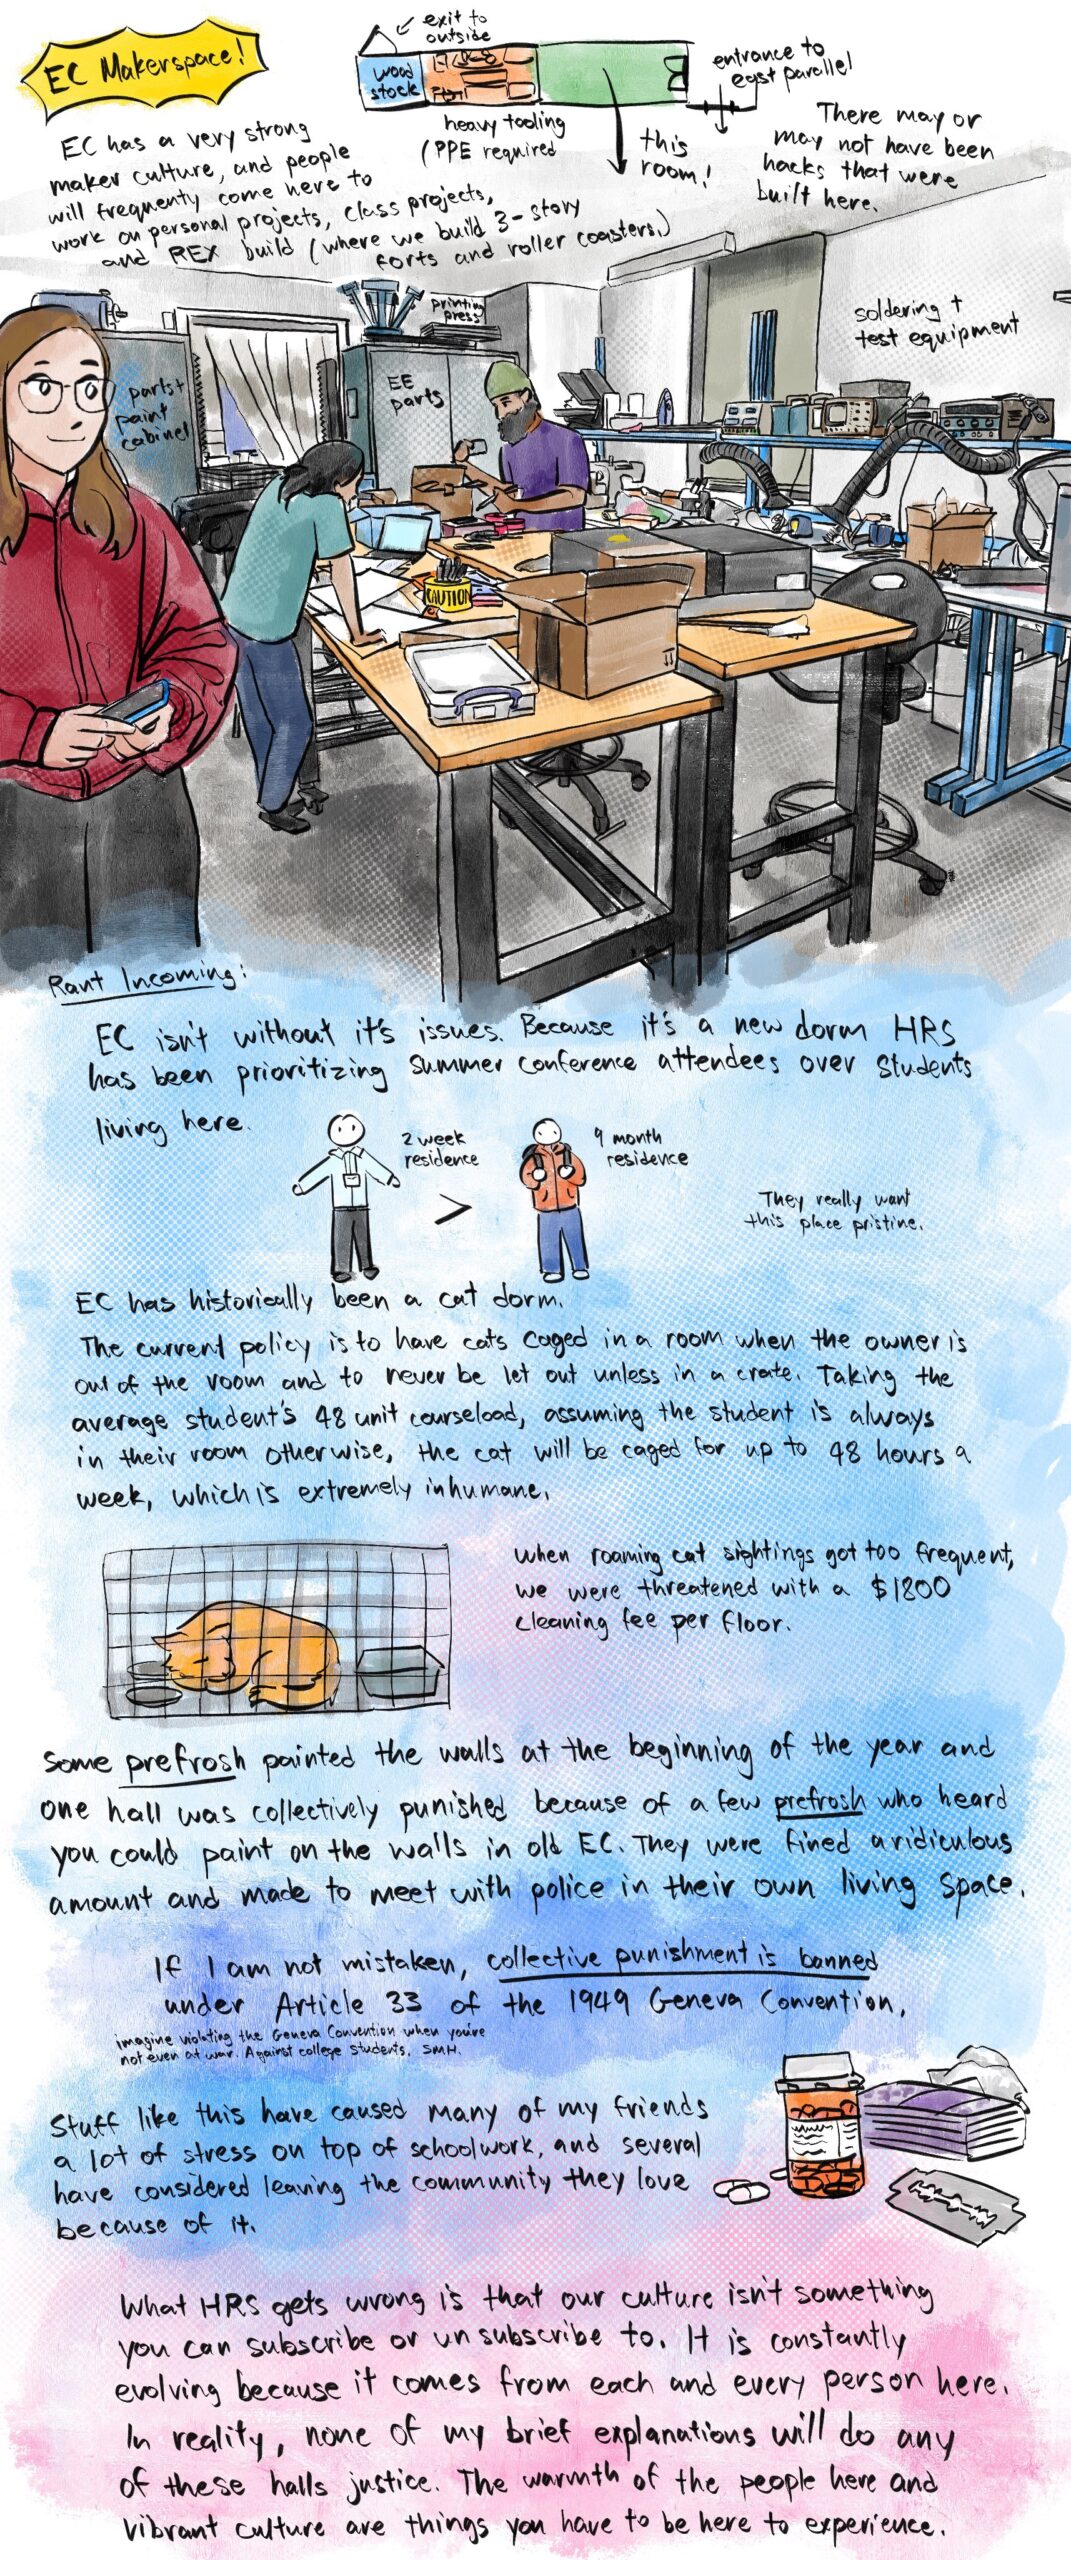 EC Makerspace!
exit to
outside
wood
stock
heavy tooling
(PPE required
this
room!
entrance to
east parallel
There may or
may not have been
hacks that were
built here.
EC has a very strong
maker culture, and people
will frequenty come here to
work on personal projects, class projects,
and REX build (where we build 3-story
forts and roller coasters.)
parts+
paint
cabinet
printing
press
EE
parts
soldering +
test equipment
CAUTION
Rant Incoming:
EC isn't without it's issues. Because it's a new dorm HRS
has been prioritizing summer conference attendees over students
living here.
2 week
residence
>
9 month
residence
They really want
this place pristine.
EC has historically been a cat dorm.
The current policy is to have cats caged in a room when the owner is
out of the room and to never be let out unless in a crate. Taking the
average student's 48 unit courseload, assuming the student is always
in their room otherwise, the cat will be caged for up to 48 hours a
week, which is extremely inhumane.
When roaming cat sightings got too frequent,
we were threatened with a $1800
cleaning fee per floor.
Some prefrosh painted the walls at the beginning of the year and
one hall was collectively punished because of a few prefrosh who heard
you could paint on the walls in old EC. They were fined a ridiculous
amount and made to meet with police in their own living space.
If I am not mistaken, collective punishment is banned
under Article 33 of the 1949 Geneva Convention.
imagine violating the Geneva Convention when you're
not even at war. Against college students. SMH.
Stuff like this have caused many of my friends
a lot of stress on top of schoolwork, and several
have considered leaving the community they love
because of it.
What HRS gets wrong is that our culture isn't something
you can subscribe or unsubscribe to. It is constantly
evolving because it comes from each and every person here.
In reality, none of my brief explanations will do any
of these halls justice. The warmth of the people here and
vibrant culture are things you have to be here to experience.